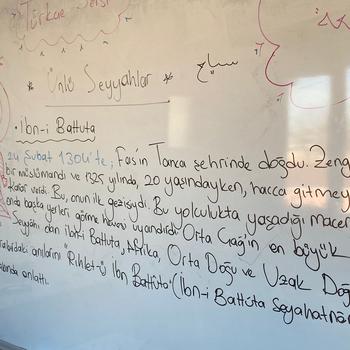 Türkçe Dersi
* Ünlü Seyyahlar *
سیاح
• İbn-i Battuta
24 Şubat 1304'te, Fas'ın Tanca şehrinde doğdu. Zeng
bir müslümandı ve 1325 yılında, 20 yaşındayken, hacca gitmey
karar verdi. Bu, onun ilk gezisiydi. Bu yolculukta yaşadığı macer
onda başka yerleri görme hevesi uyandırdı. Orta Çağ'ın en büyük
Seyyahı olan İbn-i Battuta, Afrika, Orta Doğu ve Uzak Doğ
anılarını "Rıhlet-ü İbn Battûta" (İbn-i Battûta Seyahatnam
anlattı.